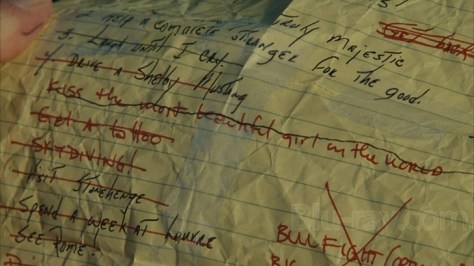 MAJESTIC
HELP A COMPLETE STRANGER FOR THE GOOD.
3. LAUGH UNTIL I CRY
4. DRIVE A SHELBY MUSTANG
KISS the most beautiful girl in the WORLD
Get A tattoo
SKYDIVING!
VISIT STONEHENGE
SPEND A WEEK AT LOUVRE
SEE ROME.
BULL FIGHT
Blu-ray.com